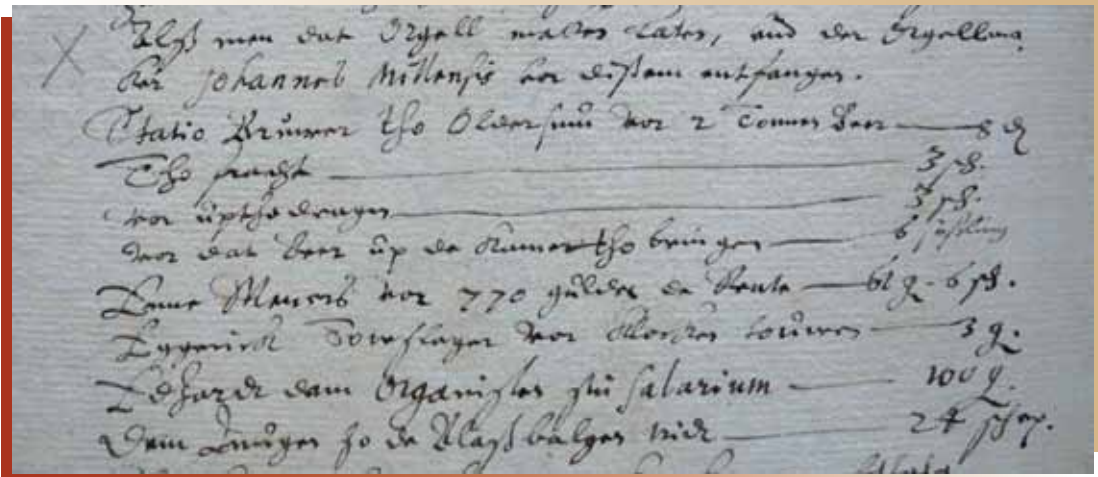 Alß men dat Orgell maken laten, und der Orgellma
ker Johannes Millensis vor dissem entfangen.
Statio Bruwer tho Oldersum vor 2 Tonnen beer 8 d
Tho fracht 3 sch.
vor upthodragen 3 sch.
vor dat beer up de Kamer tho bringen 6
Enne Meners vor 770 gulden de Rente 61 g. 6 sch.
Eggerick Towslager vor Klocken touwen 3 g.
Edhardt dem Organisten sin salarium 100 g.
Dem Jungen so de Blaßbalgen tridt 24 schap.